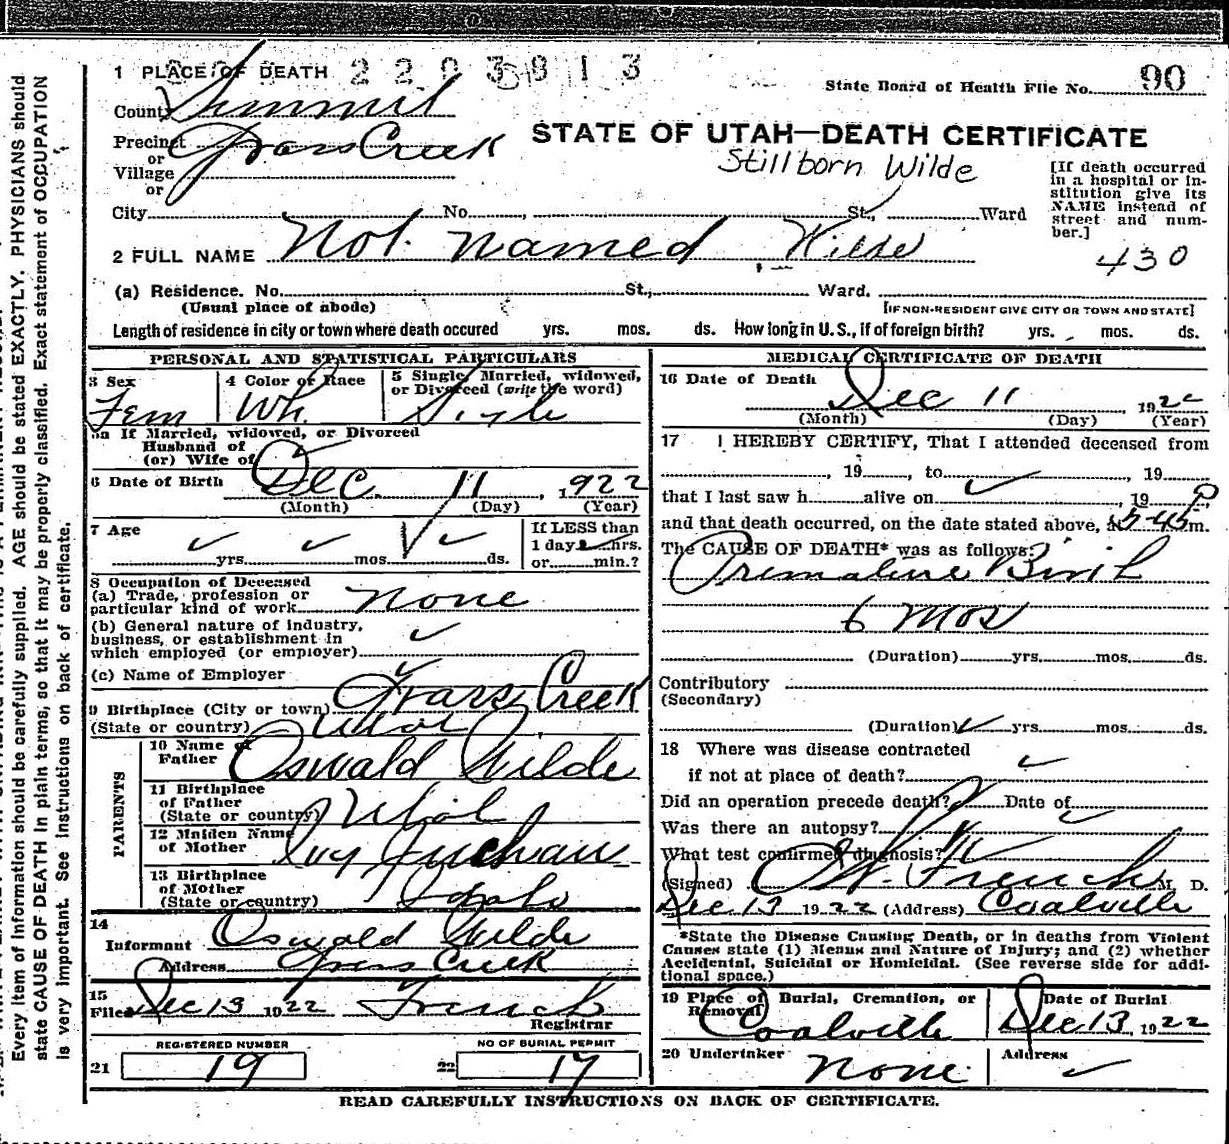 1 PLACE OF DEATH 2203813
State Board of Health File No. 90
County Summit
STATE OF UTAH—DEATH CERTIFICATE
Precinct Grass Creek
or
Village
or
Stillborn Wilde
[If death occurred in a hospital or in-
stitution give its
NAME instead of
street and num-
ber.]
City No. , St., Ward
2 FULL NAME Not named Wilde
430
(a) Residence. No. St., Ward.
(Usual place of abode) [IF NON-RESIDENT GIVE CITY OR TOWN AND STATE]
Length of residence in city or town where death occured yrs. mos. ds. How long in U. S., if of foreign birth? yrs. mos. ds.
PERSONAL AND STATISTICAL PARTICULARS
3 Sex 4 Color or Race 5 Single, Married, widowed,
or Divorced (write the word)
Fem Wh. Single
5a If Married, widowed, or Divorced
Husband of
(or) Wife of
6 Date of Birth Dec. 11, 1922
(Month) (Day) (Year)
7 Age ✓ yrs. ✓ mos. ✓ ds. If LESS than
1 day hrs.
or min.?
8 Occupation of Deceased
(a) Trade, profession or
particular kind of work none
(b) General nature of industry,
business, or establishment in
which employed (or employer) ✓
(c) Name of Employer ✓
9 Birthplace (City or town) Grass Creek
(State or country) Utah
PARENTS
10 Name of
Father Oswald Wilde
11 Birthplace
of Father
(State or country) Utah
12 Maiden Name
of Mother Ivy
13 Birthplace
of Mother
(State or country) Idaho
14
Informant Oswald Wilde
Address Grass Creek
15
Filed Dec 13 1922 French
Registrar
REGISTERED NUMBER NO OF BURIAL PERMIT
21 19 22 17
MEDICAL CERTIFICATE OF DEATH
16 Date of Death
Dec 11 1922
(Month) (Day) (Year)
17 I HEREBY CERTIFY, That I attended deceased from
, 19 , to ✓ , 19
that I last saw h alive on ✓ , 19
and that death occurred, on the date stated above, 5-45 P m.
The CAUSE OF DEATH* was as follows:
Premature Birth
6 mos
(Duration) yrs. mos. ds.
Contributory
(Secondary)
(Duration) ✓ yrs. mos. ds.
18 Where was disease contracted
if not at place of death? ✓
Did an operation precede death? Date of ✓
Was there an autopsy?
What test confirmed diagnosis?
(Signed) French M. D.
Dec 13 1922 (Address) Coalville
*State the Disease Causing Death, or in deaths from Violent
Causes state (1) Means and Nature of Injury; and (2) whether
Accidental, Suicidal or Homicidal. (See reverse side for addi-
tional space.)
19 Place of Burial, Cremation, or
Removal Date of Burial
Coalville Dec 13, 1922
20 Undertaker Address
none ✓
READ CAREFULLY INSTRUCTIONS ON BACK OF CERTIFICATE.
Every item of information should be carefully supplied. AGE should be stated EXACTLY. PHYSICIANS should
state CAUSE OF DEATH in plain terms, so that it may be properly classified. Exact statement of OCCUPATION
is very important. See instructions on back of certificate.